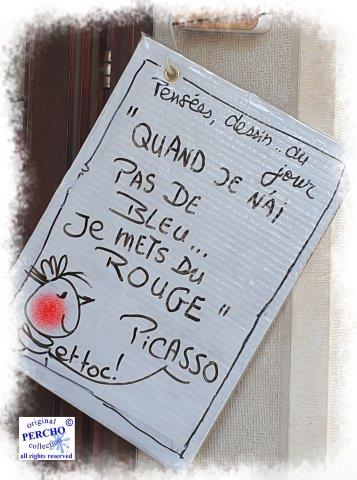 Pensées, dessin.. du
jour
"QUAND JE N'AI
PAS DE
BLEU...
JE METS DU
ROUGE"
PICASSO
et toc!
original
PERCHO ©
collection
all rights reserved